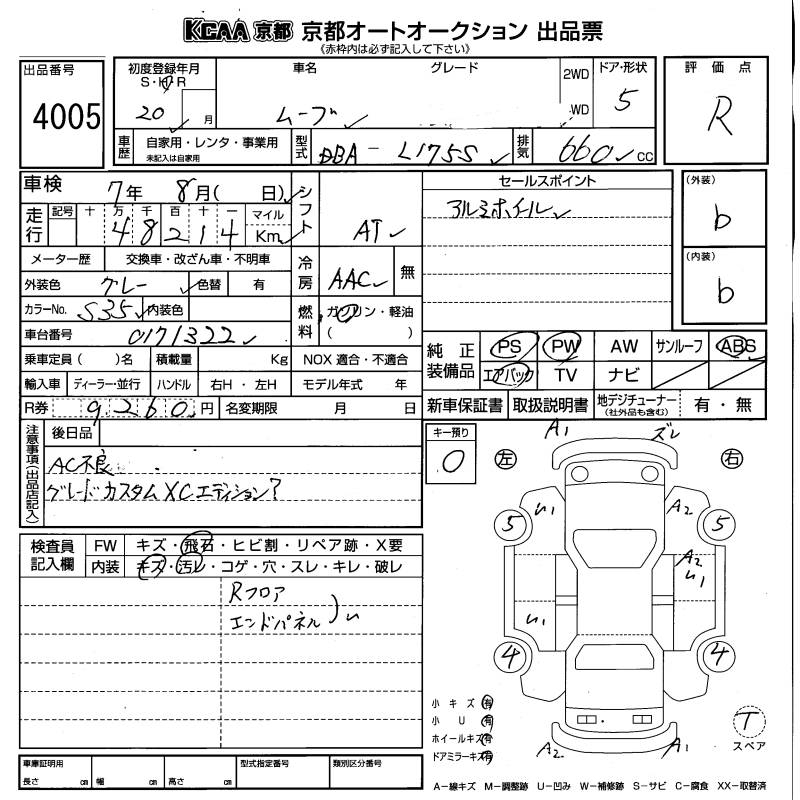 KCAA 京都 京都オートオークション 出品票
《赤枠内は必ず記入して下さい》
出品番号
4005
初度登録年月
S・H・R
20 月
車名
ムーブ
グレード
2WD
WD
ドア・形状
5
評価点
R
車歴
自家用・レンタ・事業用
未記入は自家用
型式
DBA-L175S
排気
660 cc
車検
7年 8月( 日)
シフト
AT
セールスポイント
アルミホイル
(外装)
b
(内装)
b
走行
記号 十 万 千 百 十 一
48214
マイル
Km
メーター歴
交換車・改ざん車・不明車
冷房
AAC
無
外装色
グレー
色替
有
カラーNo.
S35
内装色
燃料
ガソリン・軽油
( )
車台番号
0171322
乗車定員( )名
積載量
Kg
NOX 適合・不適合
輸入車
ディーラー・並行
ハンドル
右H・左H
モデル年式 年
R券
9260円
名変期限 月 日
純正装備品
PS
PW
AW
サンルーフ
ABS
エアバック
TV
ナビ
新車保証書
取扱説明書
地デジチューナー
(社外品も含む)
有・無
注意事項(出品店記入)
後日品
AC不良
グレードカスタムXCエディション?
キー預り
0
検査員記入欄
FW
キズ・飛石・ヒビ割・リペア跡・X要
内装
キズ・汚レ・コゲ・穴・スレ・キレ・破レ
Rフロア
エンドパネル
A1
ズレ
左
右
5
A2
5
A2
4
4
A2
A1
小キズ有
小U有
ホイールキズ有
ドアミラーキズ有
T
スペア
車庫証明用
長さ cm
幅 cm
高さ cm
型式指定番号
類別区分番号
A-線キズ M-調整跡 U-凹み W-補修跡 S-サビ C-腐食 XX-取替済